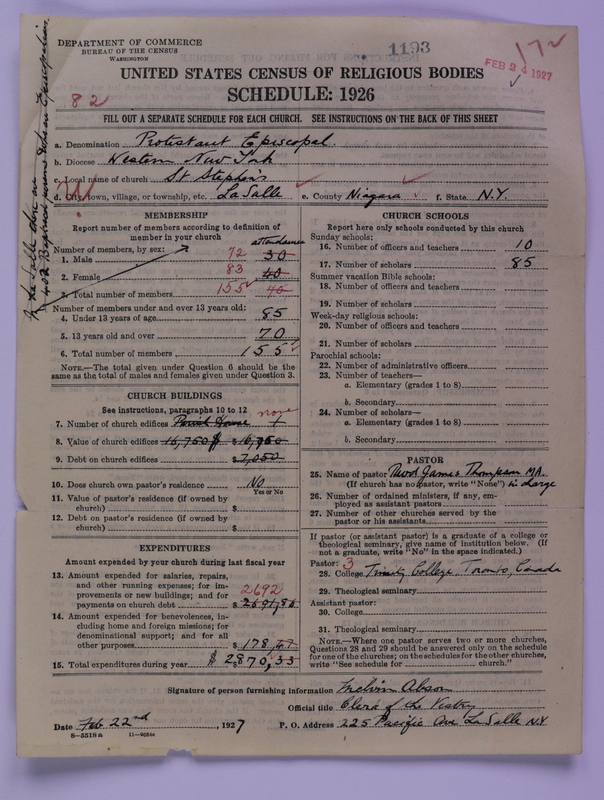 DEPARTMENT OF COMMERCE
BUREAU OF THE CENSUS
WASHINGTON
1193
172
FEB 24 1927
UNITED STATES CENSUS OF RELIGIOUS BODIES
SCHEDULE: 1926
82
FILL OUT A SEPARATE SCHEDULE FOR EACH CHURCH. SEE INSTRUCTIONS ON THE BACK OF THIS SHEET
a. Denomination Protestant Episcopal
b. Diocese Western New York
c. Local name of church St Stephen's
d. City, town, village, or township, etc. La Salle e. County Niagara f. State N.Y.
MEMBERSHIP
Report number of members according to definition of
member in your church
Number of members, by sex: attendance
1. Male 72 30
2. Female 83 40
3. Total number of members 155 40
Number of members under and over 13 years old:
4. Under 13 years of age 85
5. 13 years old and over 70
6. Total number of members 155
NOTE.—The total given under Question 6 should be the
same as the total of males and females given under Question 3.
CHURCH BUILDINGS
See instructions, paragraphs 10 to 12
none
7. Number of church edifices Parish House 1
8. Value of church edifices 16,750 $ 16,750
9. Debt on church edifices $ 7,050
10. Does church own pastor's residence No
Yes or No
11. Value of pastor's residence (if owned by
church) $
12. Debt on pastor's residence (if owned by
church) $
EXPENDITURES
Amount expended by your church during last fiscal year
13. Amount expended for salaries, repairs,
and other running expenses; for im-
provements or new buildings; and for 2692
payments on church debt $ 2691,86
14. Amount expended for benevolences, in-
cluding home and foreign missions; for
denominational support; and for all
other purposes $ 178,47
15. Total expenditures during year $ 2870,33
CHURCH SCHOOLS
Report here only schools conducted by this church
Sunday schools:
16. Number of officers and teachers 10
17. Number of scholars 85
Summer vacation Bible schools:
18. Number of officers and teachers
19. Number of scholars
Week-day religious schools:
20. Number of officers and teachers
21. Number of scholars
Parochial schools:
22. Number of administrative officers
23. Number of teachers—
a. Elementary (grades 1 to 8)
b. Secondary
24. Number of scholars—
a. Elementary (grades 1 to 8)
b. Secondary
PASTOR
25. Name of pastor James Thompson M.A.
(If church has no pastor, write "None") in charge
26. Number of ordained ministers, if any, em-
ployed as assistant pastors
27. Number of other churches served by the
pastor or his assistants
If pastor (or assistant pastor) is a graduate of a college or
theological seminary, give name of institution below. (If
not a graduate, write "No" in the space indicated.)
Pastor: 3
28. College Trinity College, Toronto, Canada
29. Theological seminary
Assistant pastor:
30. College
31. Theological seminary
NOTE.—Where one pastor serves two or more churches,
Questions 28 and 29 should be answered only on the schedule
for one of the churches; on the schedules for the other churches,
write "See schedule for church."
Signature of person furnishing information Melvin Abson
Official title Clerk of the Vestry
Date Feb 22nd, 1927 P. O. Address 225 Pacific Ave La Salle N.Y
8—5518a 11—9054a